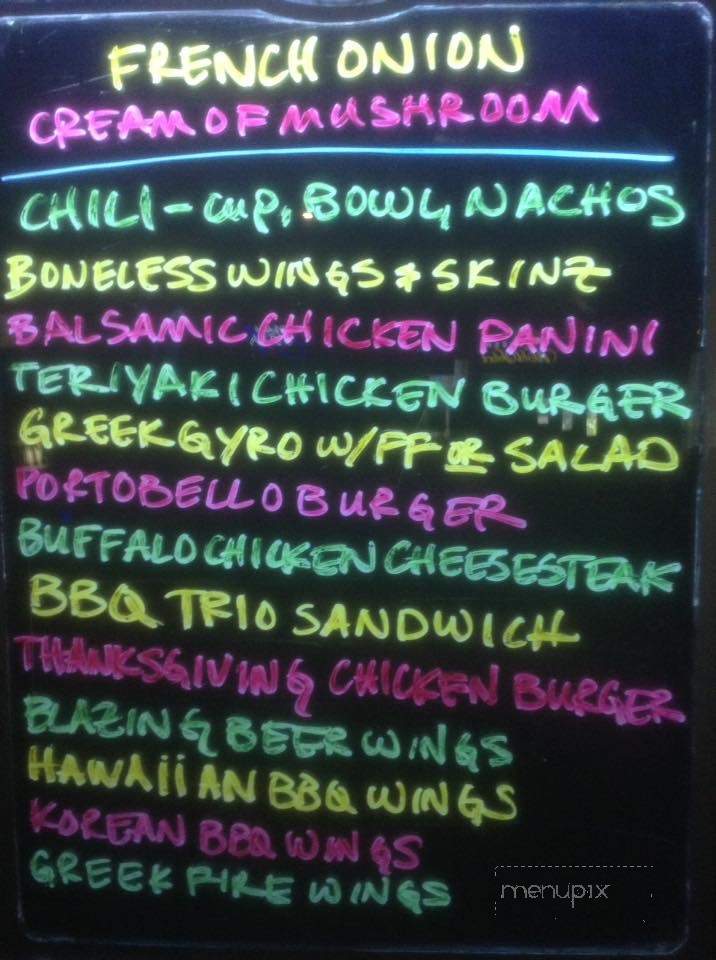 FRENCH ONION
CREAM OF MUSHROOM
CHILI - cup, BOWL, NACHOS
BONELESS WINGS & SKINZ
BALSAMIC CHICKEN PANINI
TERIYAKI CHICKEN BURGER
GREEK GYRO W/FF OR SALAD
PORTOBELLO BURGER
BUFFALO CHICKEN CHEESESTEAK
BBQ TRIO SANDWICH
THANKSGIVING CHICKEN BURGER
BLAZING BEER WINGS
HAWAIIAN BBQ WINGS
KOREAN BBQ WINGS
GREEK FIRE WINGS
menupix